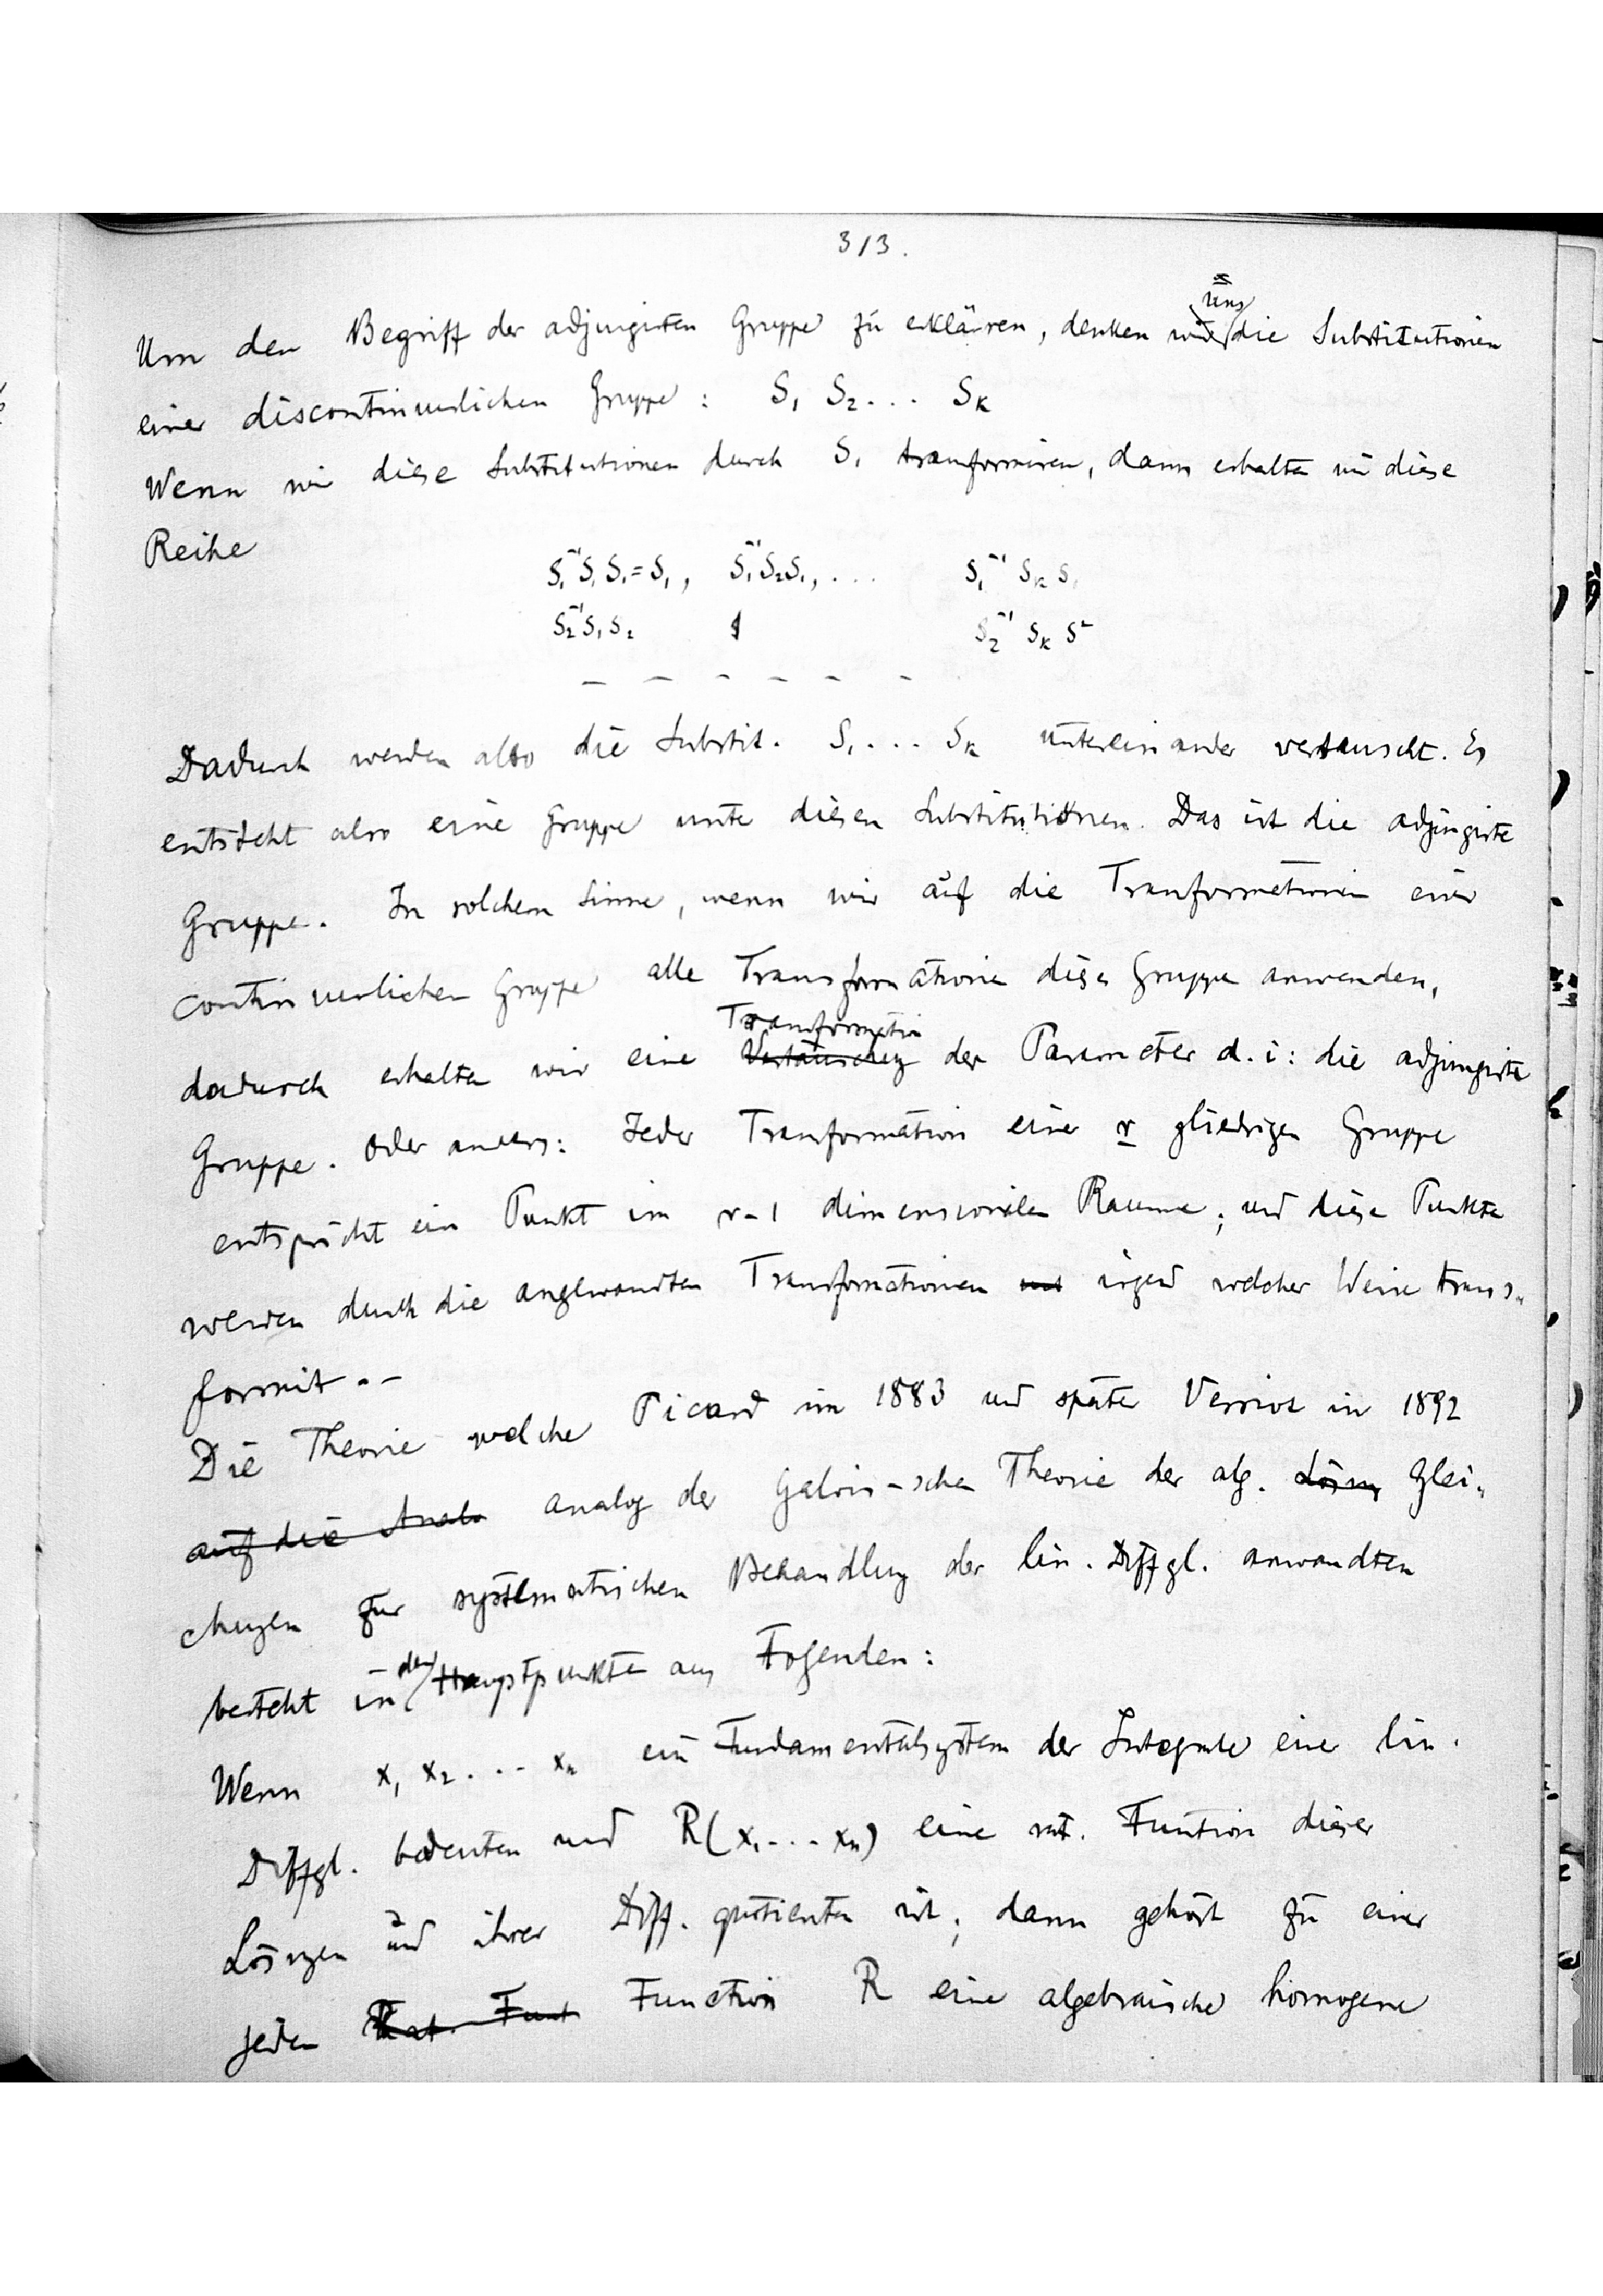 313.
Um den Begriff der adjungirten Gruppe zu erklären, denken wir uns die Substitutionen
einer discontinuerlichen Gruppe : S₁ S₂ . . . Sₖ
Wenn wir diese Substitutionen durch S₁ transformiren, dann erhalten wir diese
Reihe
S₁⁻¹S₁S₁=S₁ , S₁⁻¹S₂S₁, . . . S₁⁻¹ Sₖ S₁
S₂⁻¹S₁S₂ S₂⁻¹ Sₖ S²
– – – – – –
Dadurch werden also die Substit. S₁ . . . Sₖ untereinander vertauscht. Es
entsteht also eine Gruppe unter diesen Substitutionen. Das ist die adjungirte
Gruppe. In solchem Sinne, wenn wir auf die Transformationen einer
continuerlichen Gruppe alle Transformationen dieser Gruppe anwenden,
Transformation
dadurch erhalten wir eine Vertauschung der Parameter d. i: die adjungirte
Gruppe. Oder anders: Jeder Transformation einer r gliedrigen Gruppe
entspricht ein Punkt im r-1 dimensionalen Raume; und diese Punkte
werden durch die angewandten Transformationen irgend welcher Weise trans-
formirt. –
Die Theorie welche Picard im 1883 und später Vessiot in 1892
auf die Analo analog der Galois-schen Theorie der alg. Lösung Glei-
chungen zur systematischen Behandlung der lin. Diffgl. anwandten
besteht in den Hauptpunkten aus Folgenden :
Wenn x₁ x₂ . . . xₙ ein Fundamentalsystem der Integrale einer lin.
Diffgl. bedeuten und R(x₁ . . . xₙ) eine rat. Funtion dieser
Lösungen und ihrer Diff. quotienten ist; dann gehört zu einer
jeden Rat. Funt Function R eine algebraische homogene